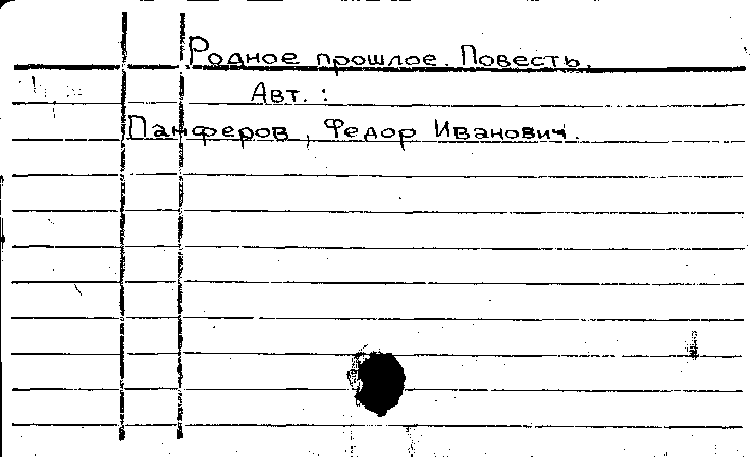 Родное прошлое. Повесть.
Авт. :
Панферов, Федор Иванович.